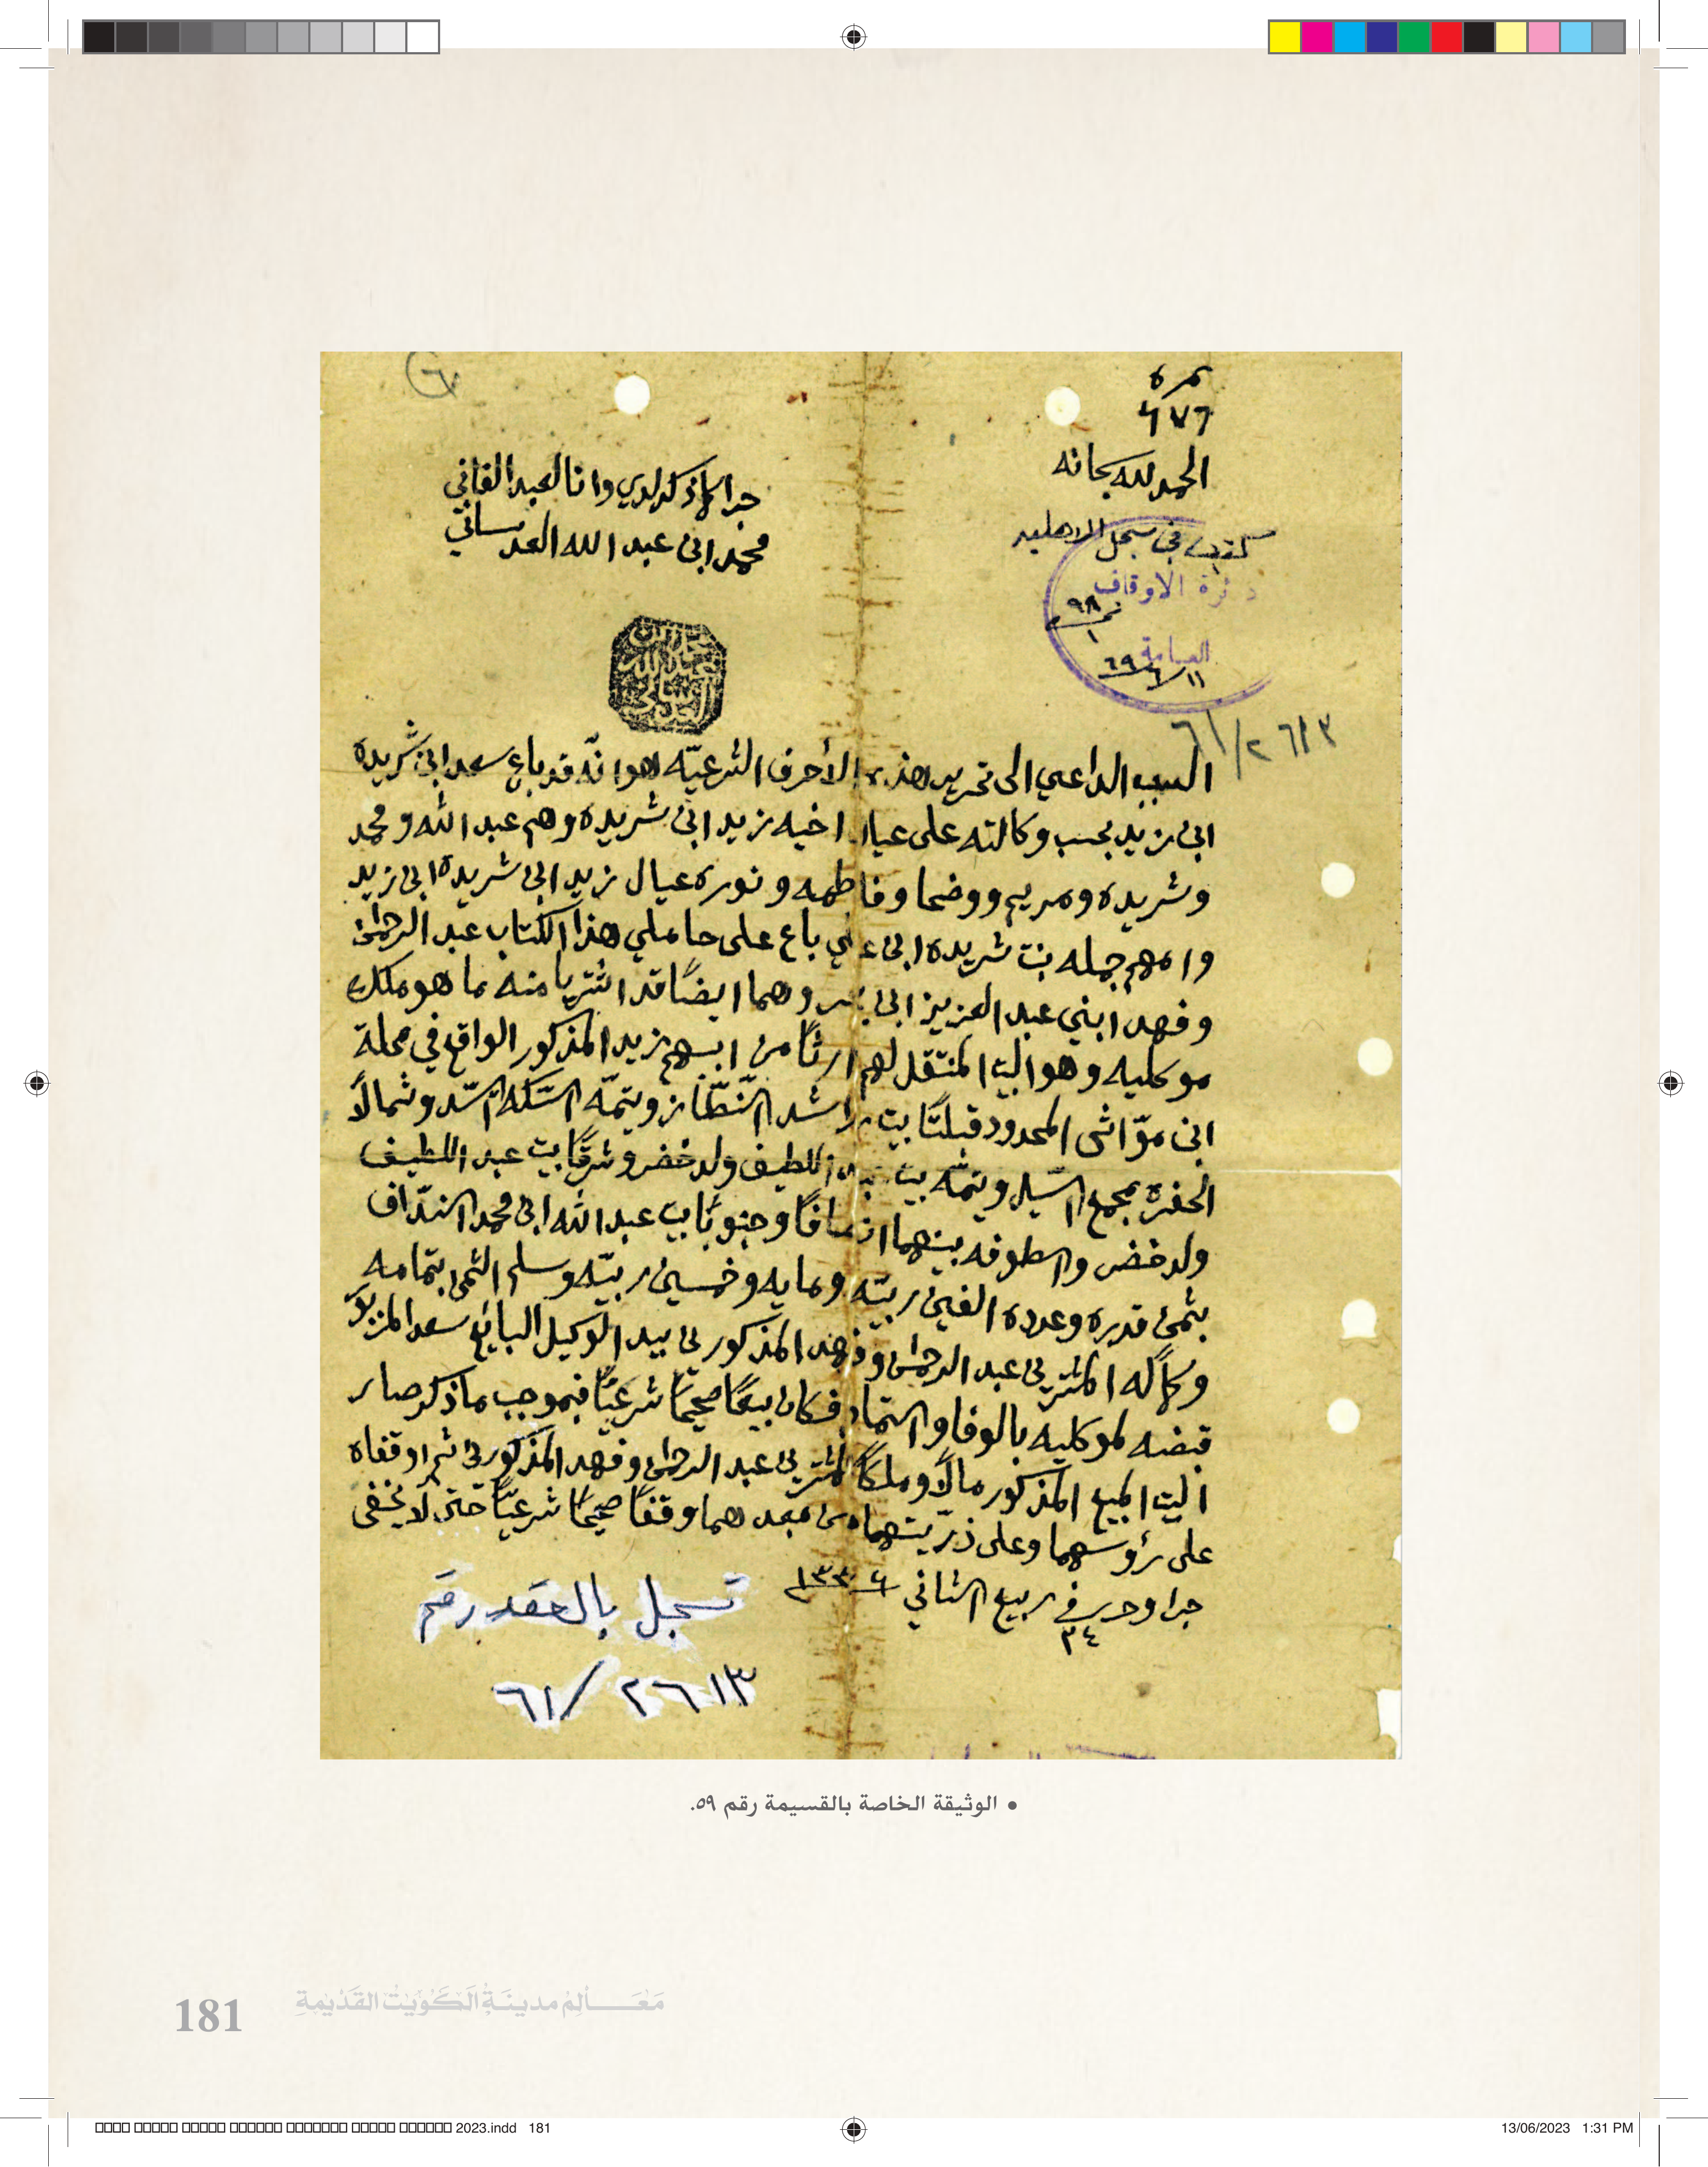 نمره
٦٧٦
الحمد لله سبحانه
جرا كما ذكر لدي وانا العبد الفاني
محمد ابن عبد الله العدساني
كتب في سجل الاهليه
دئرة الاوقاف
نمره ٩٨
١
العامة
١١/٦/٦٩
محمد بن عبد الله العدساني
٢٦١٣/٦١
السبب الداعي الى تحرير هذه الأحرف الشرعيّه هو انّه قد باع سعد ابن شريده
ابن زيد بحسب وكالته على عيال اخيه زيد ابن شريده وهم عبد الله ومحمد
وشريده ومريم ووضحا وفاطمه ونوره عيال زيد ابن شريده ابن زيد
وامهم جمله بنت شريده ابن علي باع على حاملي هذا الكتاب عبد الرحمن
وفهد ابني عبد العزيز ابن وهما ايضًا قد اشتريا منه ما هو ملك
موكليه وهو البيت المنتقل لهم ارثًا من ابيهم زيد المذكور الواقع في محلة
ابن موّاش المحدود قبلتًا بيت راشد النّطّاز ويتمّه السّكه السّد وشمالاً
الحفره مجمع السّيل ويتمّه بيت عبد اللطيف ولد خضر وشرقًا بيت عبد اللطيف
ولد خضر والطوفه بينهما انصافًا وجنوبًا بيت عبد الله ابن محمد النّداف
بثمن قدره وعدده الفين ربيّه ومايه وخمسين ربيّه وسلم الثمن بتمامه
وكماله المشترين عبد الرحمن وفهد المذكورين بيد الوكيل البايع سعد المزبور
قبضه لموكليه بالوفا والتمام فكان بيعًا صحيحًا شرعيًّا فبموجب ما ذكر صار
البيت المبيع المذكور مالاً وملكًا للمشترين عبد الرحمن وفهد المذكورين ثم اوقفاه
على رؤوسهما وعلى ذرّيتهما من بعدهما وقفًا صحيحًا شرعيًّا حتى لا يخفى
جرا وحرر في ربيع الثاني ١٣٣٤
٣٤
تسجل بالعقد رقم
٢٦١٣/٦١
• الوثيقة الخاصة بالقسيمة رقم ٥٩.
181 مَعَـــالِمُ مدينَةِ الكُوَيْتِ القَدْيمةِ
2023.indd 181
13/06/2023 1:31 PM